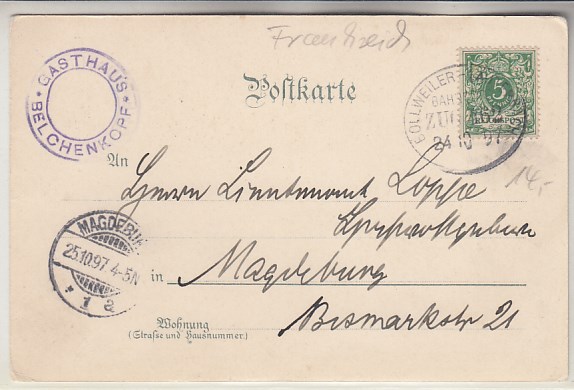 Frankreich
GASTHAUS
BELCHENKOPF
Postkarte
BOLLWEILER
BAHNPOST
ZUG
24 10 97
5
14.-
An
Herrn Lieutenant Loppe
MAGDEBURG
25.10.97. 4-5N
* 1 a
in Magdeburg
Wohnung
(Straße und Hausnummer)
Bismarkstr 21